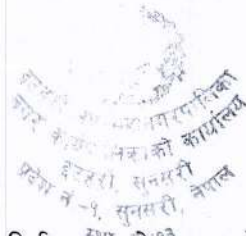 इटहरी उप महानगरपालिका
नगर कार्यपालिकाको कार्यालय
इटहरी, सुनसरी
प्रदेश नं -१, सुनसरी, नेपाल